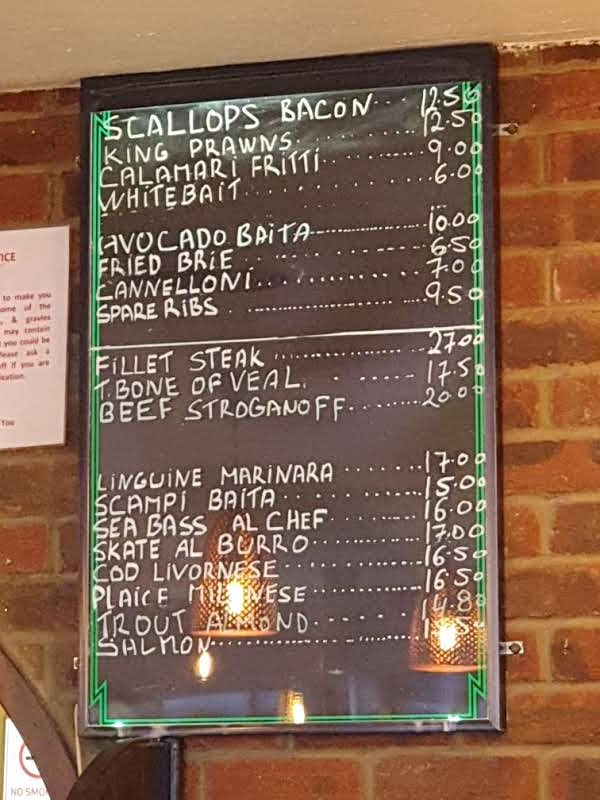 SCALLOPS BACON 12.50
KING PRAWNS 12.50
CALAMARI FRITTI 9.00
WHITEBAIT 6.00
AVOCADO BAITA 10.00
FRIED BRIE 6.50
CANNELLONI 7.00
SPARE RIBS 9.50
FILLET STEAK 27.00
T.BONE OF VEAL 17.50
BEEF STROGANOFF 20.00
LINGUINE MARINARA 17.00
SCAMPI BAITA 15.00
SEA BASS AL CHEF 16.00
SKATE AL BURRO 17.00
COD LIVORNESE 16.50
PLAICE MILANESE 16.50
TROUT ALMOND 14.80
SALMON
to make you
of the
& gravies
may contain
you could be
ask a
if you are
You
NO